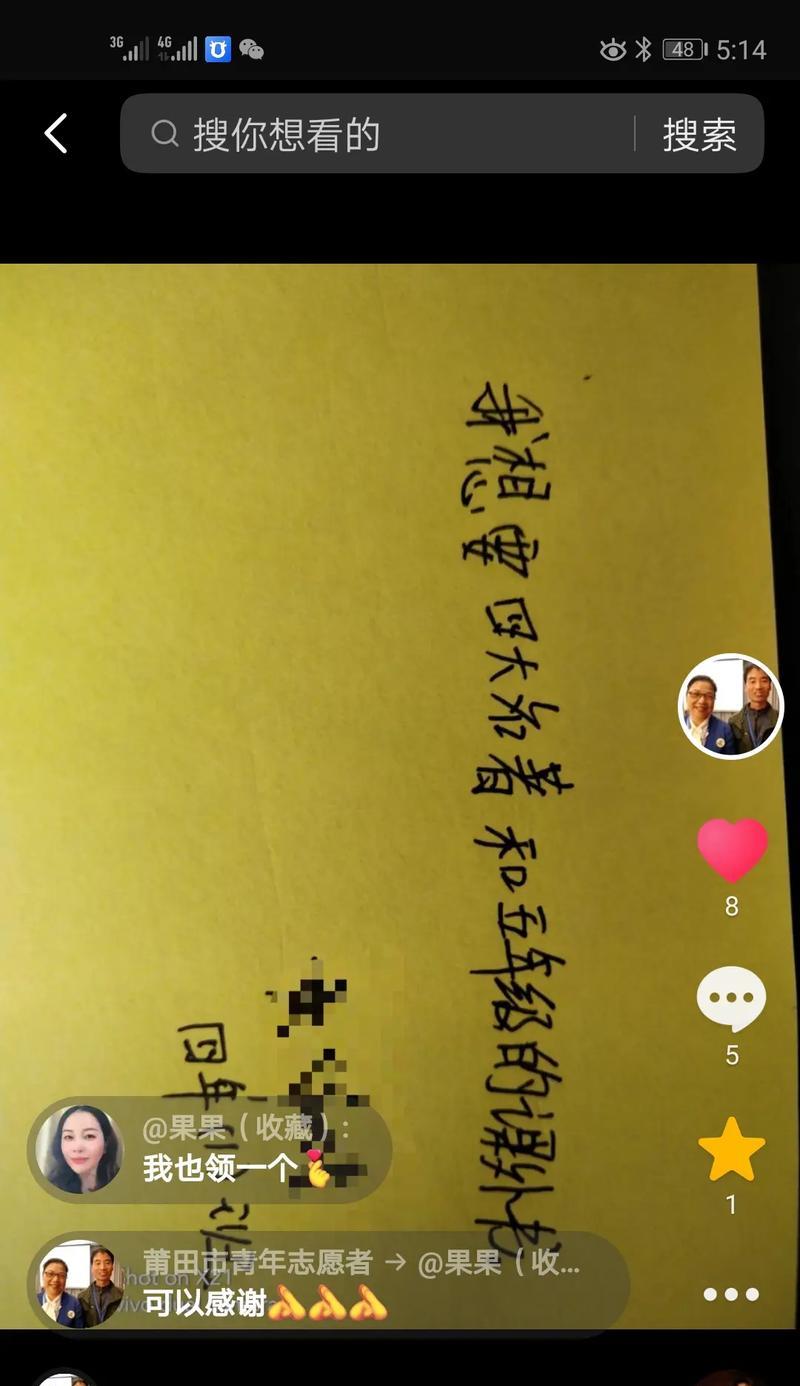 3G 4G 48 5:14
搜你想看的 搜索
我想要四大名著和五年级的课外书
8
5
四年
@果果（收藏）:
我也领一个
1
莆田市青年志愿者 → @果果（收...
Shot on X21
可以感谢
vivo